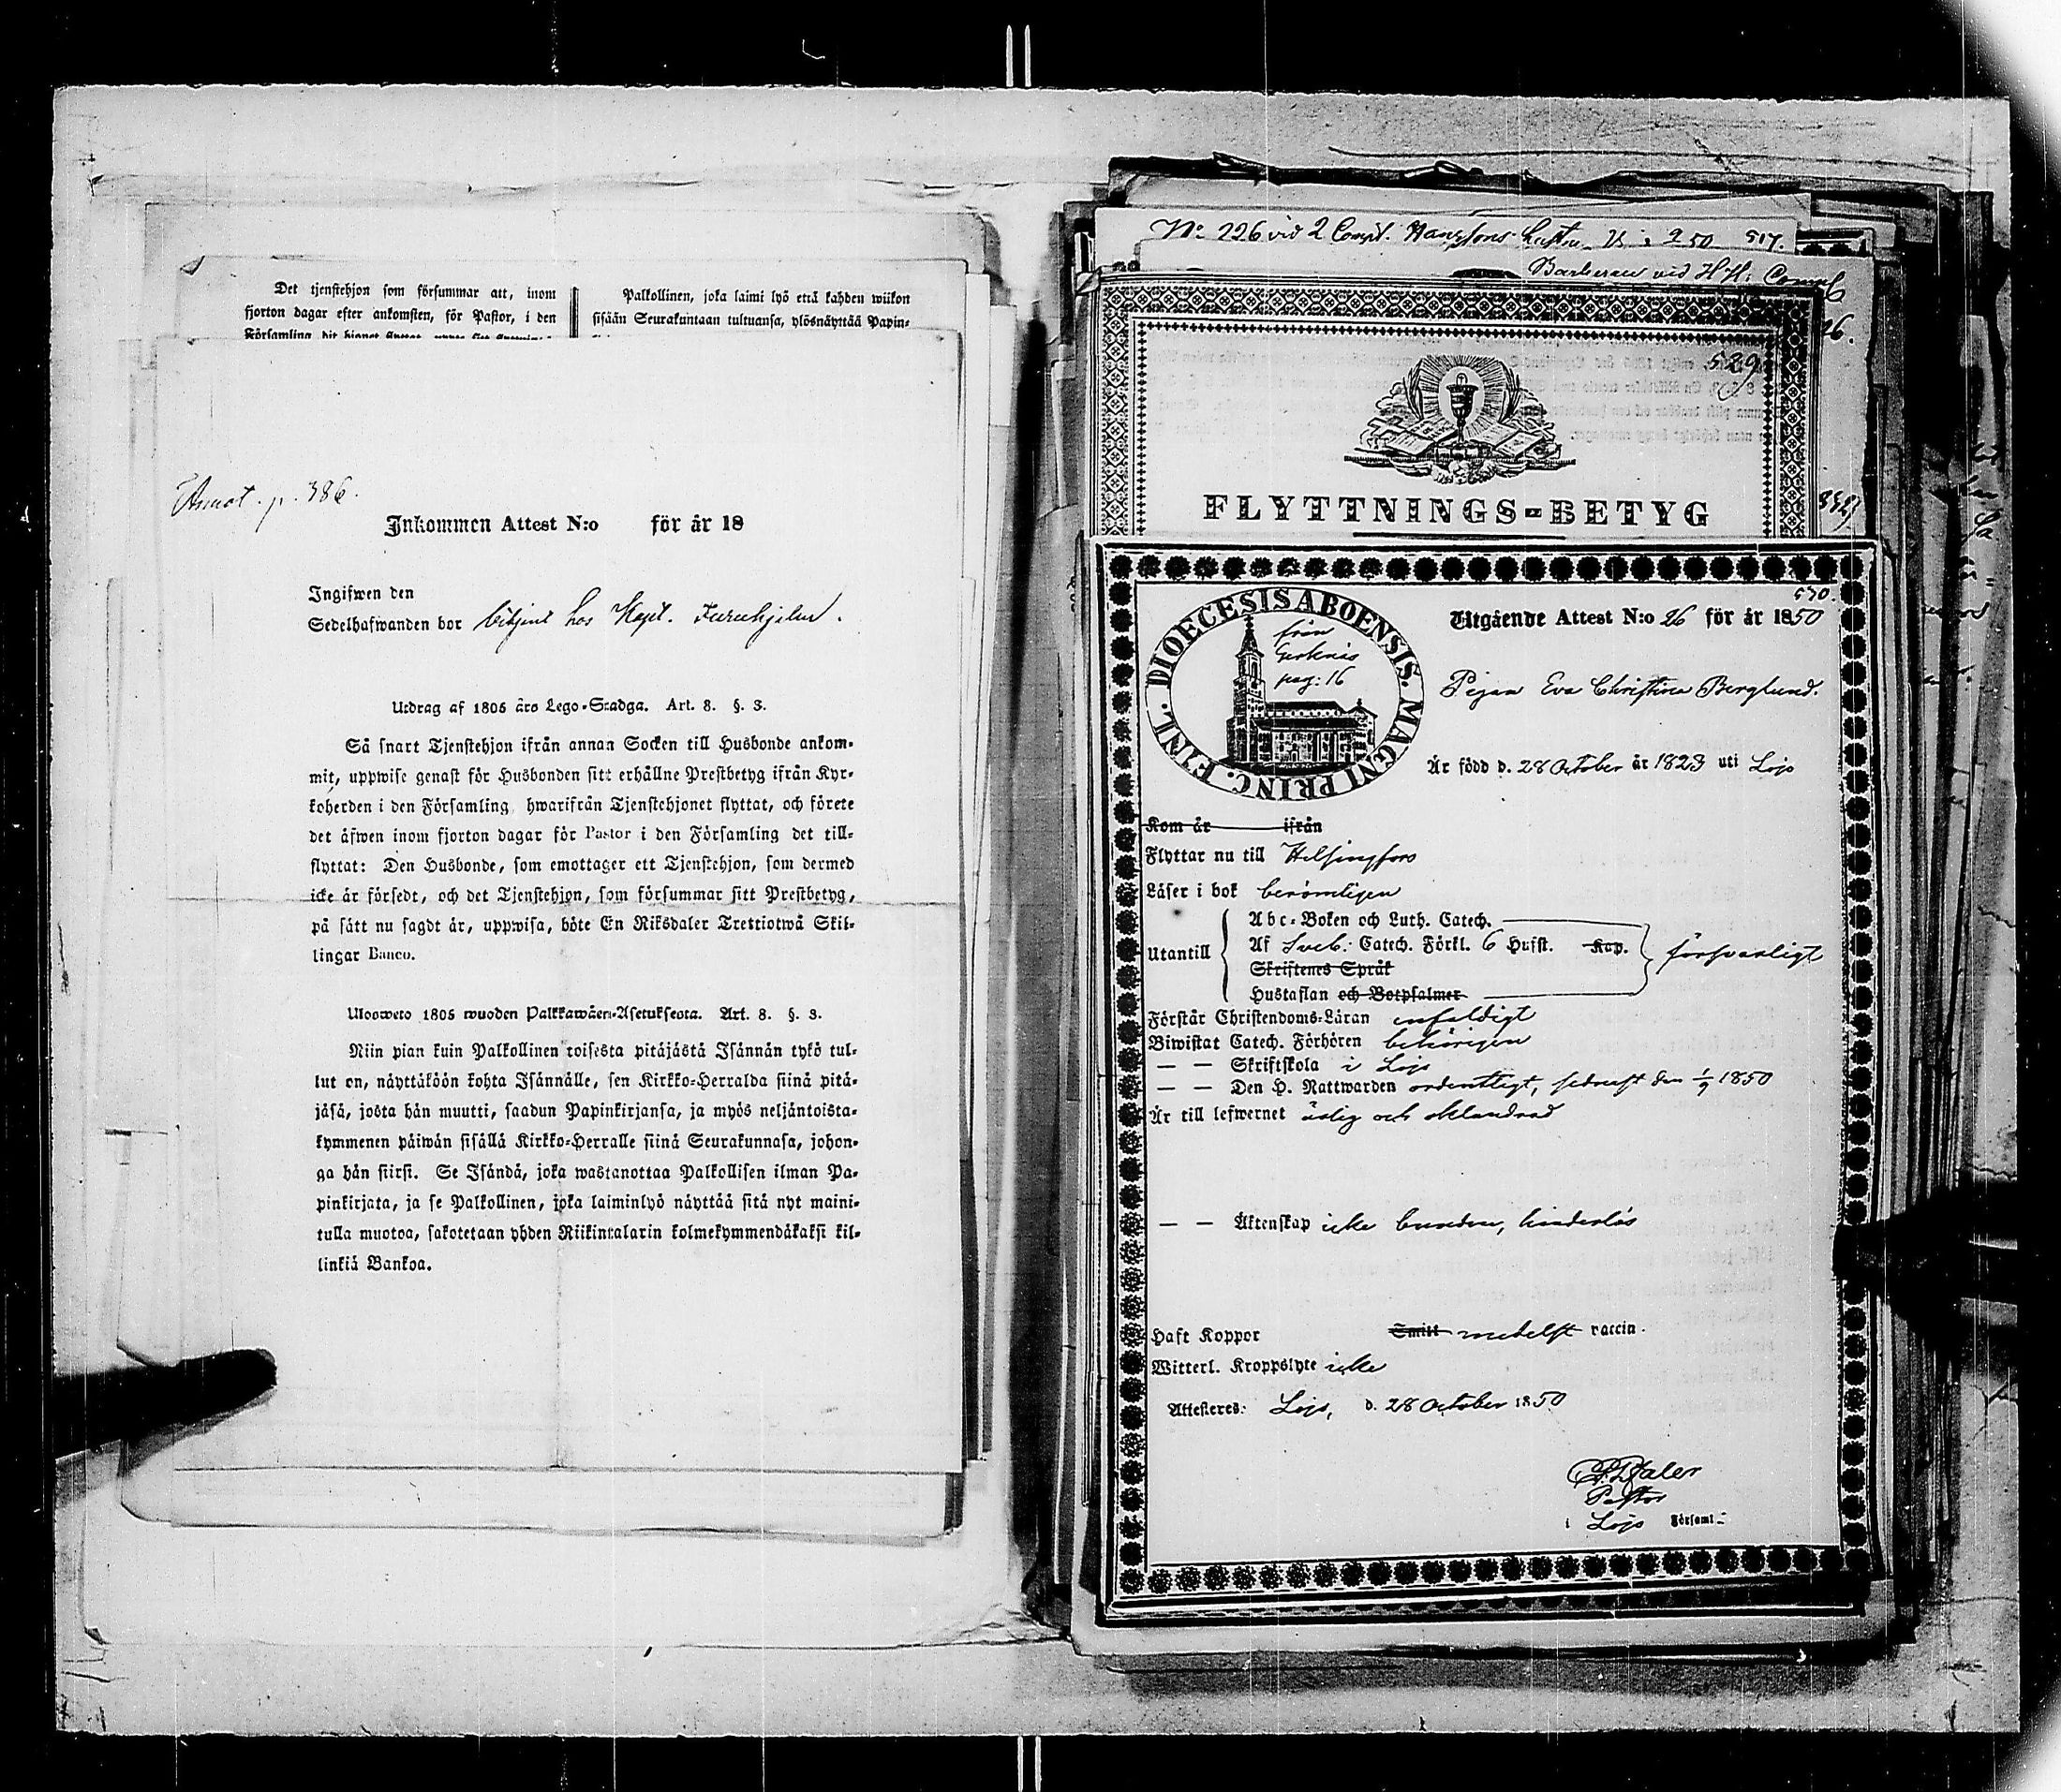 Det tjenstehjon som försummar att, inom
fjorton dagar efter ankomsten, för Pastor, i den
Församling dit hjonet flyttat,
Palkollinen, joka laimi lyö että kahden wiikon
sisään Seurakuntaan tultuansa, ylösnäyttää Papin-
Annot. p. 386.
Inkommen Attest N:o för år 18
Ingifwen den
Sedelhafwanden bor hos Kapt.
Utdrag af 1805 års Lego-Stadga. Art. 8. §. 3.
Så snart Tjenstehjon ifrån annan Socken till Husbonde ankom-
mit, uppwise genast för Husbonden sitt erhållne Prestbetyg ifrån Kyr-
koherden i den Församling hwarifrån Tjenstehjonet flyttat, och förete
det äfwen inom fjorton dagar för Pastor i den Församling det till-
flyttat: Den Husbonde, som emottager ett Tjenstehjon, som dermed
icke är försedt, och det Tjenstehjon, som försummar sitt Prestbetyg,
på sätt nu sagdt är, uppwisa, böte En Riksdaler Trettiotwå Skil-
lingar Banco.
Ulosweto 1805 wuoden Palkkawäen-Asetuksesta. Art. 8. §. 3.
Niin pian kuin Palkollinen toisesta pitäjästä Isännän tykö tul-
lut on, näyttäköön kohta Isännälle, sen Kirkko-Herralda siinä pitä-
jäsä, josta hän muutti, saadun Papinkirjansa, ja myös neljäntoista-
kymmenen päiwän sisällä Kirkko-Herralle siinä Seurakunnasa, johon-
ga hän siirsi. Se Isändä, joka wastanottaa Palkollisen ilman Pa-
pinkirjata, ja se Palkollinen, joka laiminlyö näyttää sitä nyt maini-
tulla muotoa, sakotetaan yhden Riikintalarin kolmekymmendäkaksi kil-
linkiä Bankoa.
No 226 vid 2 Comp. 517.
vid
26.
529
FLYTTNINGS-BETYG
570
DIOECESIS ABOENSIS. MAGNI PRINC. FINL.
från
Gerknäs
pag: 16
Utgående Attest N:o 26 för år 1850
Pigan Eva Christina Berglund.
Är född d. 28 October år 1823 uti Lojo
Kom år ifrån
Flyttar nu till Helsingfors
Läser i bok berömligen
Utantill
Abc-Boken och Luth. Catech.
Af Sveb. Catech. Förkl. 6 Hufst. Kap.
Skriftenes Språk
Hustaflan och Botpsalmer
försvarligt
Förstår Christendoms-Läran enfaldigt
Biwistat Catech. Förhören behörigen
— — Skriftskola i Lojo
— — Den H. Nattwarden ordentligt, sednast den 1/9 1850
Är till lefwernet ärlig och oklandrad
— — Äktenskap icke bunden, hinderlös
Haft Koppor Smitt medelst vaccin.
Witterl. Kroppslyte icke
Attesteres: Lojo, d. 28 October 1850
Pastor
i Lojo Församl.